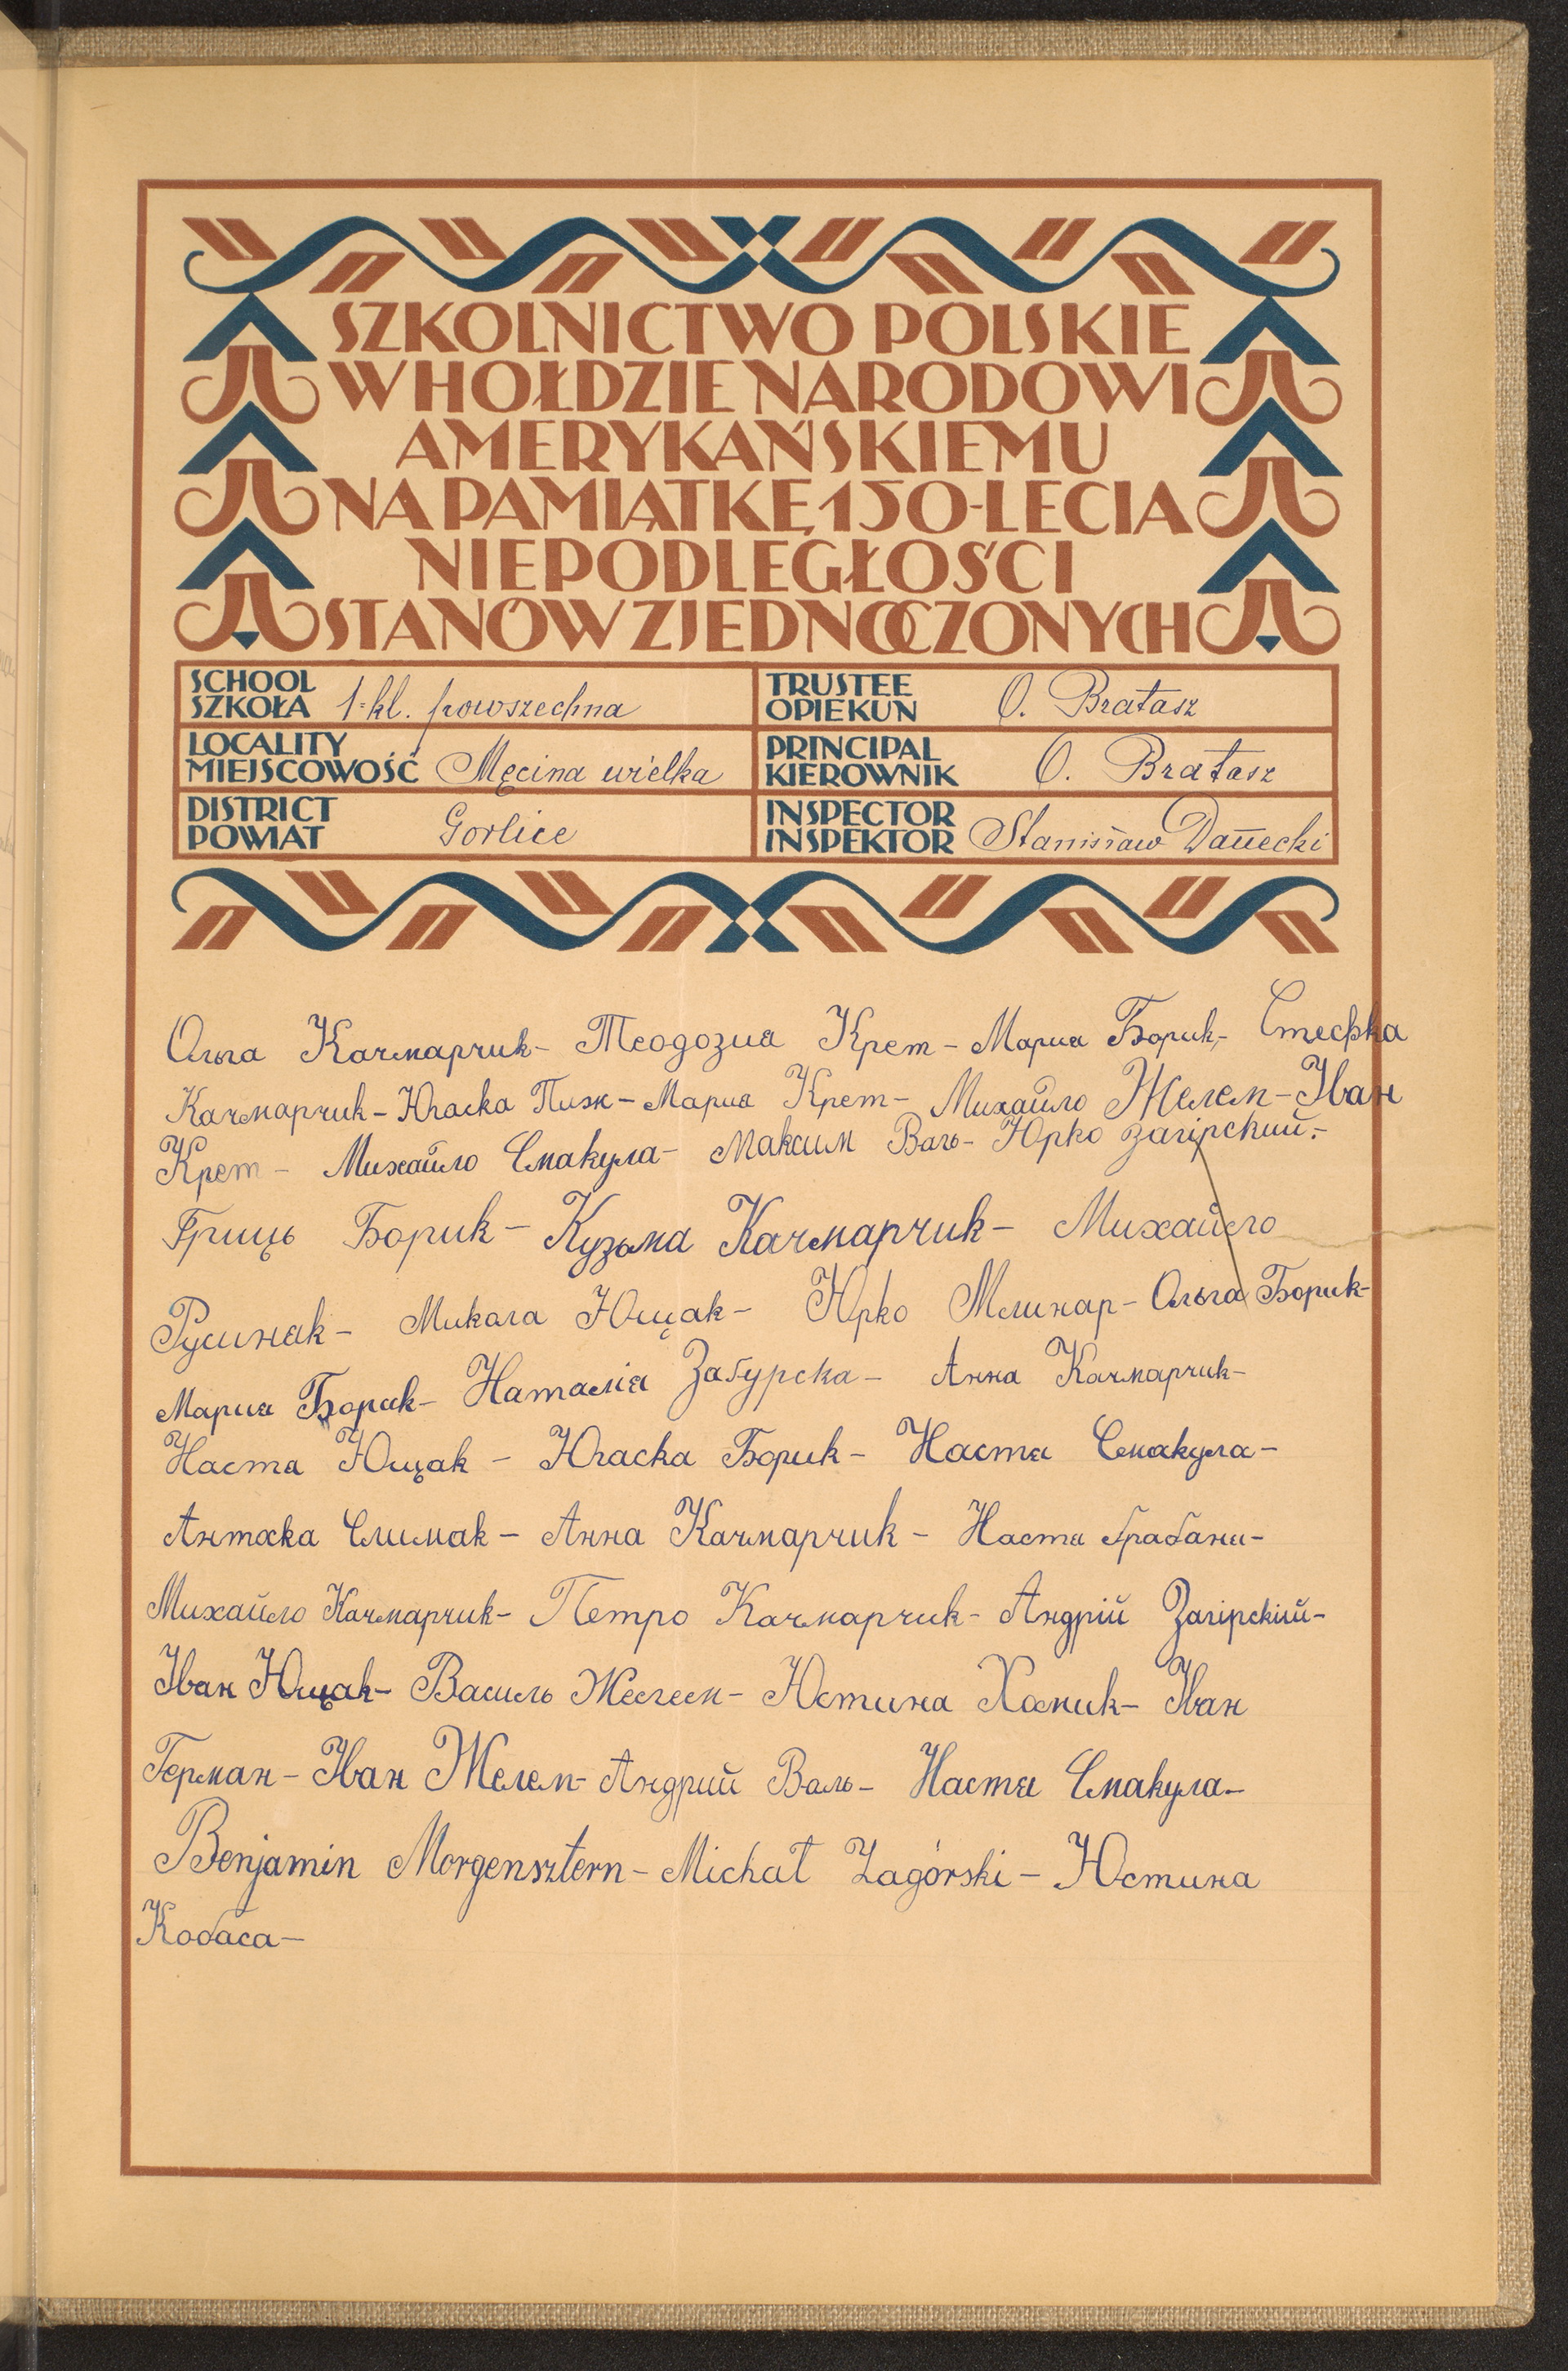 SZKOLNICTWO POLSKIE
W HOŁDZIE NARODOWI
AMERYKAŃSKIEMU
NA PAMIĄTKĘ 150-LECIA
NIEPODLEGŁOŚCI
STANÓW ZJEDNOCZONYCH
SCHOOL
SZKOŁA 1-kl. powszechna
TRUSTEE
OPIEKUN O. Bratasz
LOCALITY
MIEJSCOWOŚĆ Męcina wielka
PRINCIPAL
KIEROWNIK O. Bratasz
DISTRICT
POWIAT Gorlice
INSPECTOR
INSPEKTOR Stanisław Danecki
Ольга Качмарчик - Теодозия Крет - Мария Борик, - Стефка
Качмарчик - Югаска Пиж - Мария Крет - Михайло Желем - Іван
Крет - Михайло Смакула - Максим Валь - Юрко Загірский. -
Гриць Борик - Кузьма Качмарчик - Михайло
Русиняк - Микола Ющак - Юрко Млинар - Ольга Борик -
Мария Борик - Наталія Забурска - Анна Качмарчик -
Настя Ющак - Югаска Борик - Настя Смакула -
Антоска Слимак - Анна Качмарчик - Настя Грабаня -
Михайло Качмарчик - Петро Качмарчик - Андрій Загірскій -
Іван Ющак - Василь Желем - Юстина Хомик - Іван
Герман - Іван Желем - Андрий Валь - Настя Смакула -
Benjamin Morgensztern - Michał Zagórski - Юстина
Кобаса -